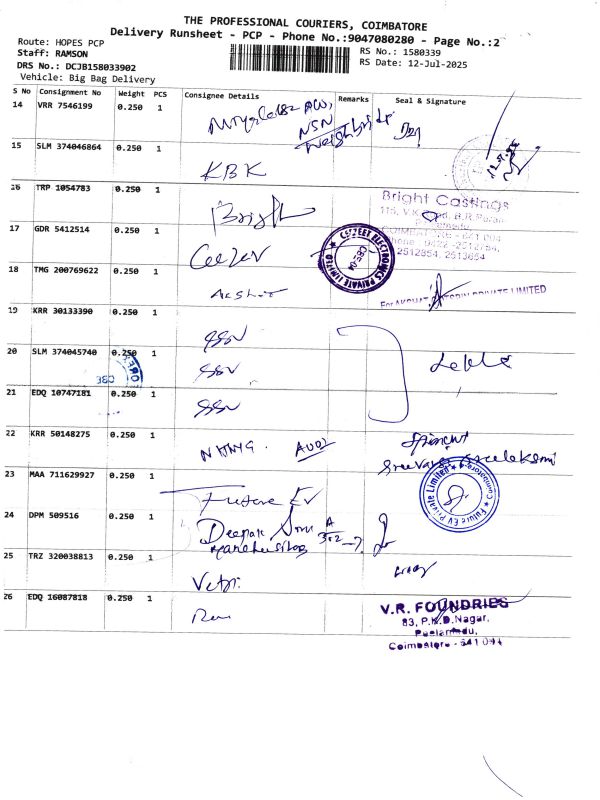 THE PROFESSIONAL COURIERS, COIMBATORE
Delivery Runsheet - PCP - Phone No.:9047080280 - Page No.:2
Route: HOPES PCP
Staff: RAMSON
DRS No.: DCJB158033902
Vehicle: Big Bag Delivery
RS No.: 1580339
RS Date: 12-Jul-2025
S No Consignment No Weight PCS Consignee Details Remarks Seal & Signature
14 VRR 7546199 0.250 1
NSN
Weighbridge
15 SLM 374046864 0.250 1 KBK
16 TRP 1054783 0.250 1 Bright
Bright Castings
17 GDR 5412514 0.250 1 Ceezev
CEEZEET ELECTRONICS PRIVATE LIMITED
CBE-04
2512854, 2513654
18 TMG 200769622 0.250 1 Akshat
PRIVATE LIMITED
19 KRR 30133390 0.250 1 SSV
20 SLM 374045740 0.250 1 SSV
CBE
21 EDQ 10747181 0.250 1 SSV
22 KRR 50148275 0.250 1
23 MAA 711629927 0.250 1 Future EV
Future EV Private Limited
Coimbatore
24 DPM 509516 0.250 1 Deepak
25 TRZ 320038813 0.250 1 Vetri
26 EDQ 16087818 0.250 1
V.R. FOUNDRIES
83, P.K.D.Nagar,
Peelamedu,
Coimbatore - 641 004